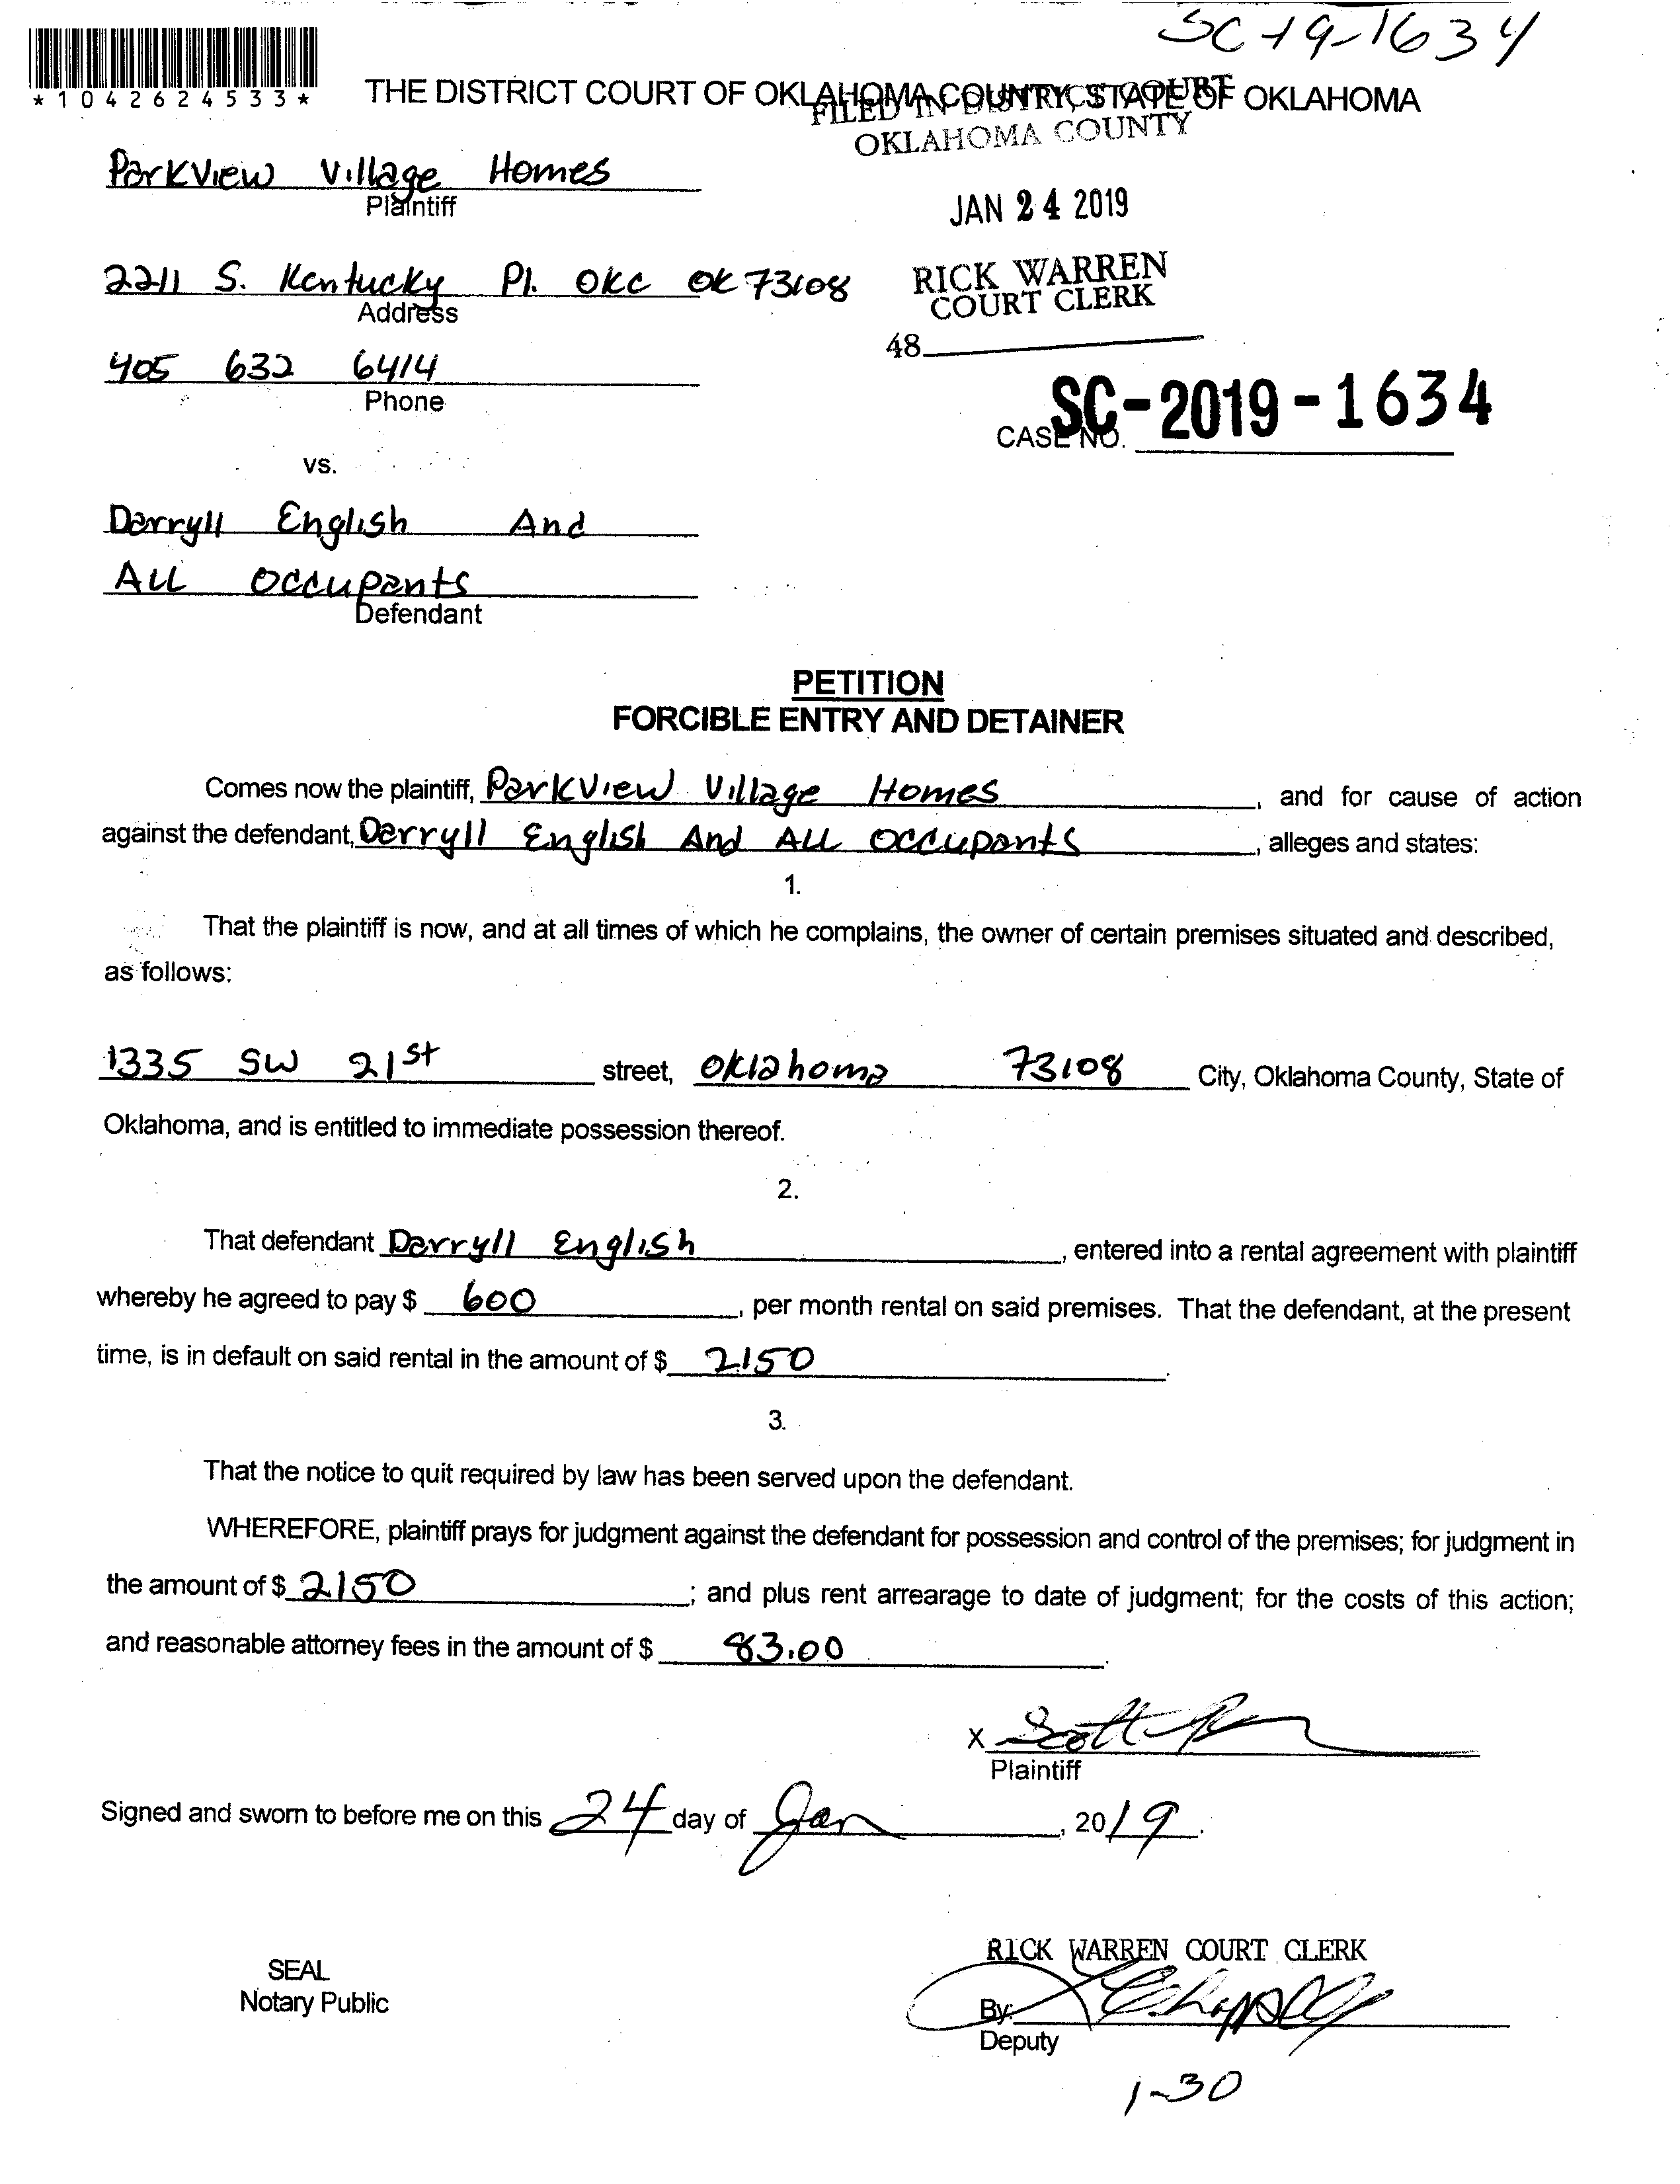 SC-19-1634
*1042624533*
THE DISTRICT COURT OF OKLAHOMA COUNTY, STATE OF OKLAHOMA
FILED IN DISTRICT COURT
OKLAHOMA COUNTY
Parkview Village Homes
Plaintiff
JAN 24 2019
2211 S. Kentucky Pl. OKC OK 73108
Address
RICK WARREN
COURT CLERK
48
405 632 6414
Phone
SC-2019-1634
CASE NO.
vs.
Darryll English And
ALL Occupants
Defendant
PETITION
FORCIBLE ENTRY AND DETAINER
Comes now the plaintiff, Parkview Village Homes, and for cause of action
against the defendant, Darryll English And ALL Occupants, alleges and states:
1.
That the plaintiff is now, and at all times of which he complains, the owner of certain premises situated and described,
as follows:
1335 SW 21st street, Oklahoma 73108 City, Oklahoma County, State of
Oklahoma, and is entitled to immediate possession thereof.
2.
That defendant Darryll English, entered into a rental agreement with plaintiff
whereby he agreed to pay $ 600, per month rental on said premises. That the defendant, at the present
time, is in default on said rental in the amount of $ 2150.
3.
That the notice to quit required by law has been served upon the defendant.
WHEREFORE, plaintiff prays for judgment against the defendant for possession and control of the premises; for judgment in
the amount of $ 2150; and plus rent arrearage to date of judgment; for the costs of this action;
and reasonable attorney fees in the amount of $ 83.00.
X Scott
Plaintiff
Signed and sworn to before me on this 24 day of Jan, 2019.
RICK WARREN COURT CLERK
SEAL
Notary Public
By:
Deputy
1-30